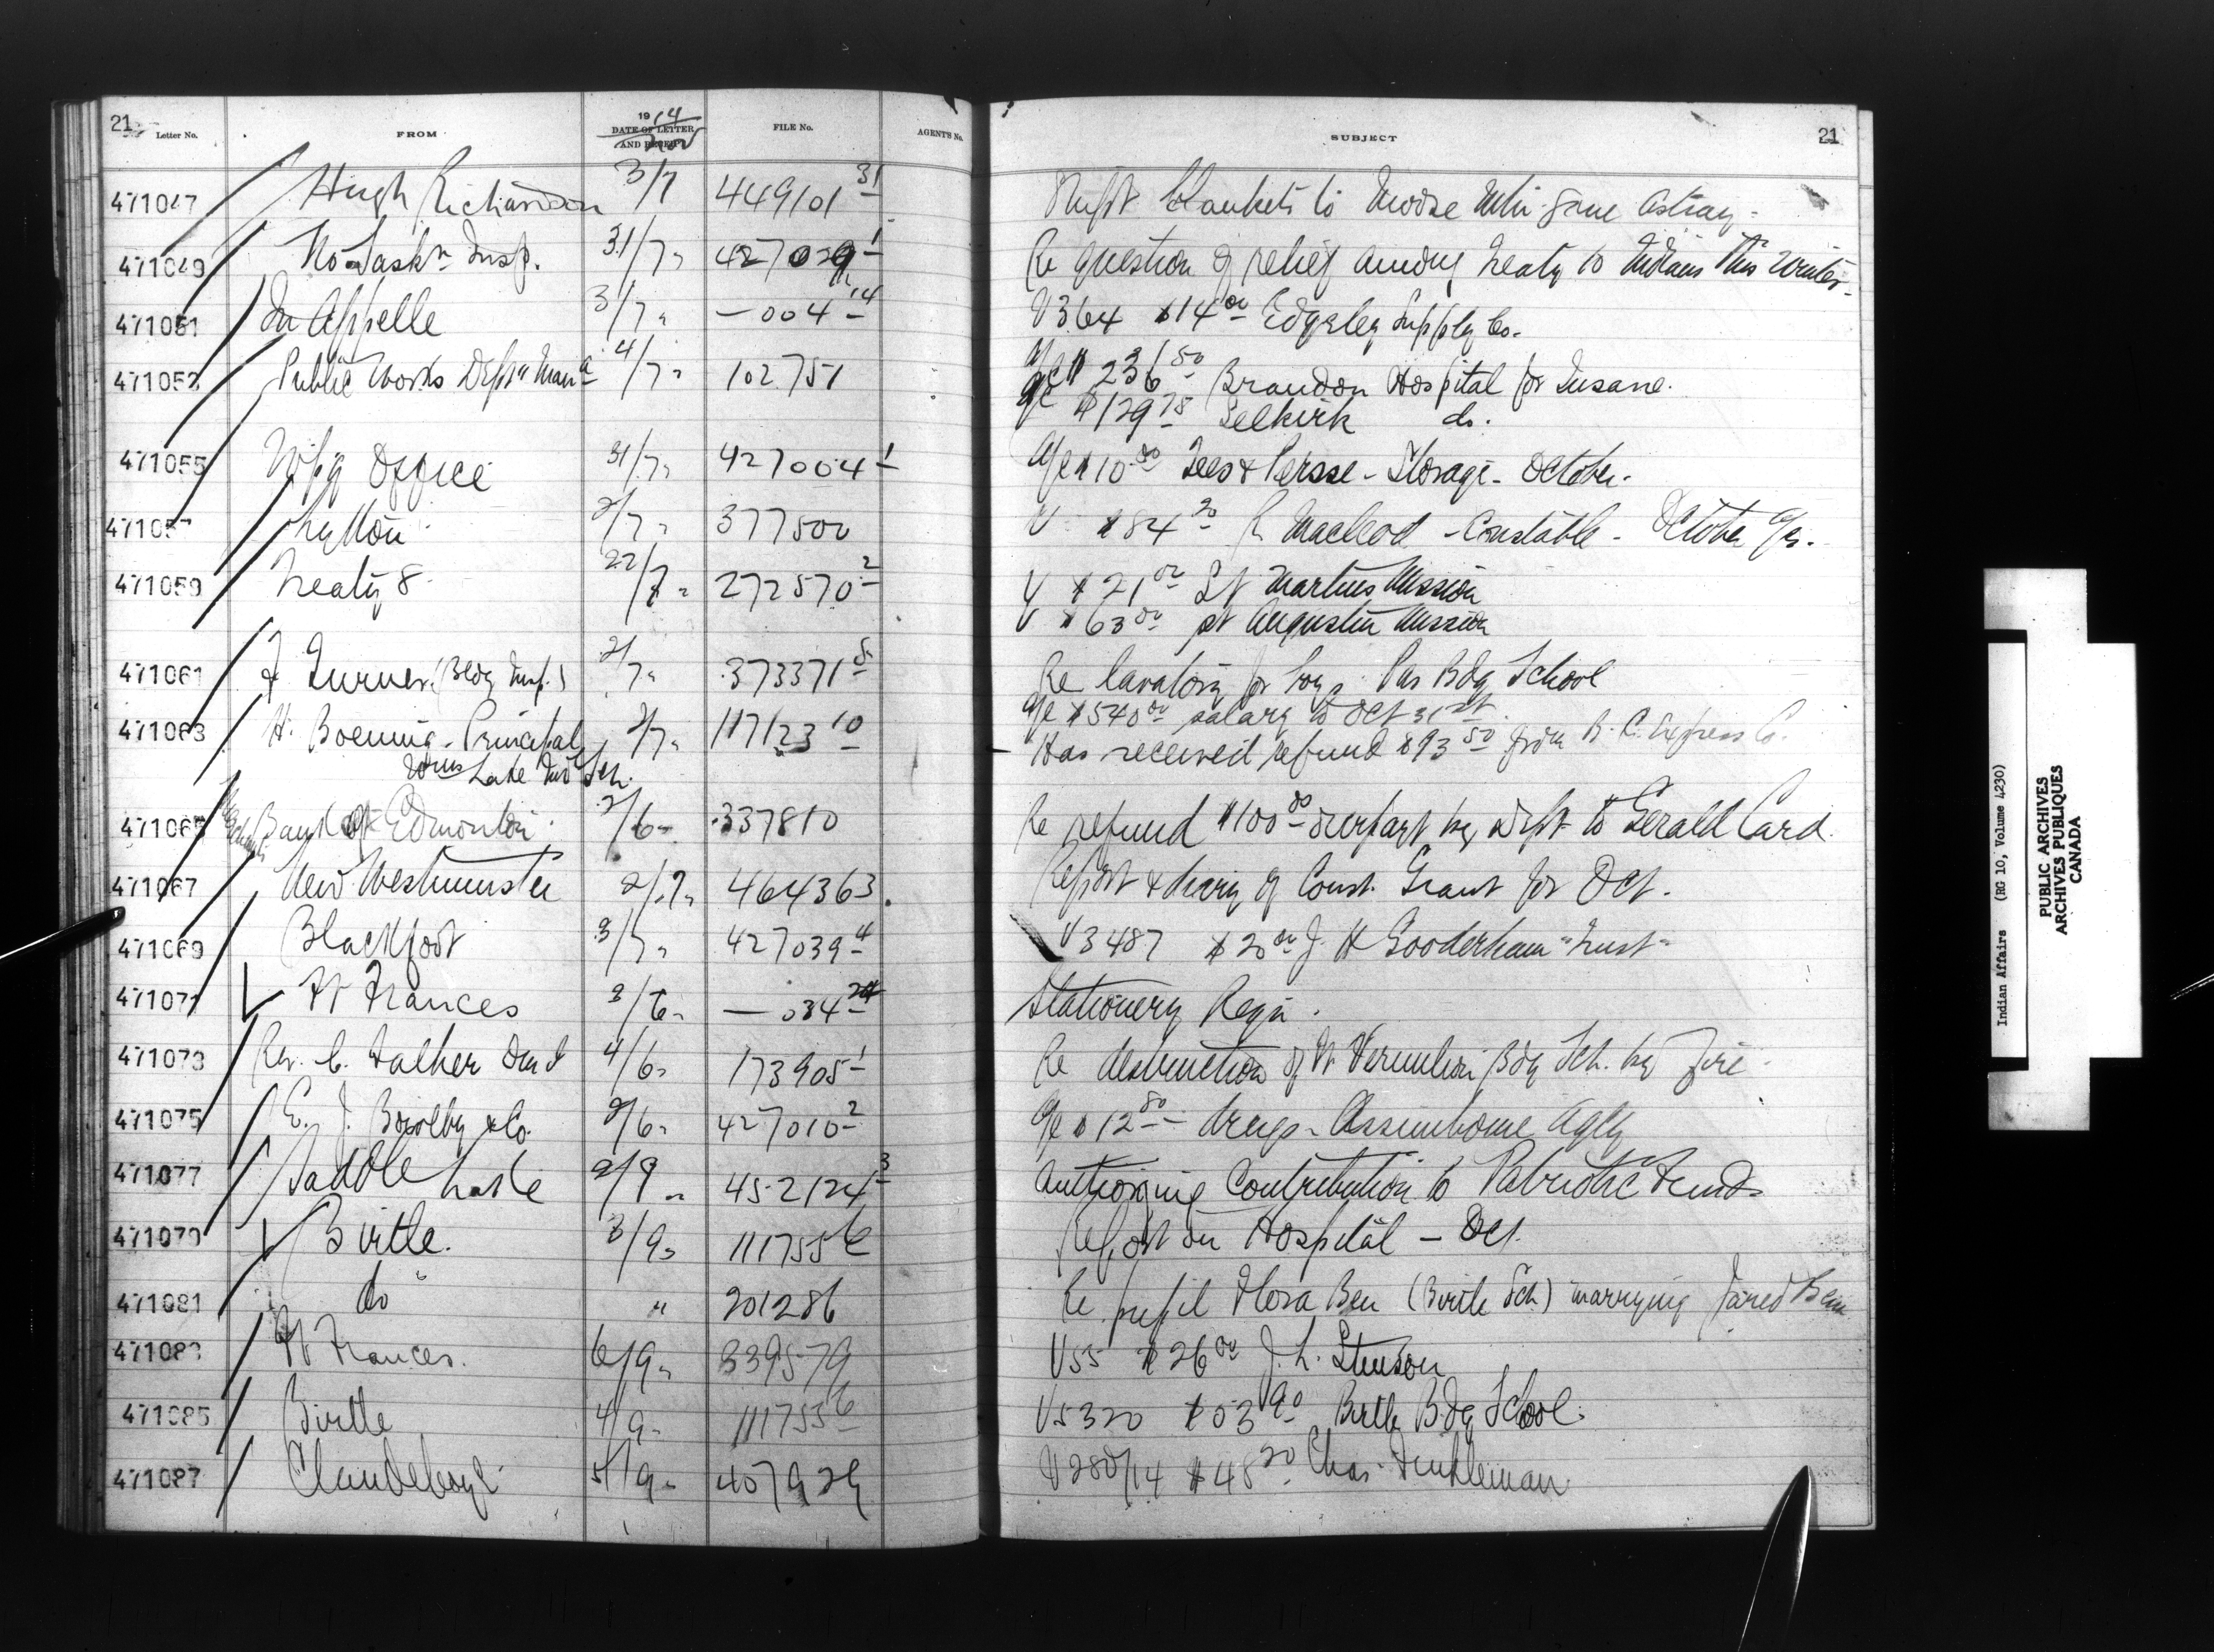 21 Letter No. FROM 1914 DATE OF LETTER AND RECEIPT Nov FILE No. AGENT'S No. SUBJECT 21
471047 Hugh Richardson 3/7 449101 31 Blankets to Moose Mtn gone astray -
471049 No Sask n Insp. 31/7 " 427029 1 Re question of relief among Treaty 10 Indians this Winter -
471051 Qu Appelle 3/7 " — 004 14 V364 $14 00 Edgeley Supply Co.
471053 Public Works Dept Man a 4/7 " 102751 a/c $ 236 50 Brandon Hospital for Insane.
a/c $129 75 Selkirk do.
471055 Wpg Office 31/7 " 427004 1 a/c $10 00 Tees & Persse - Storage - October -
471057 Lytton 2/7 " 377500 V $84 20 R Macleod - Constable - October a/c.
471059 Treaty 8 22/7 " 272570 2 V $21 00 St Martins Mission
V $63 00 St Augustin Mission
471061 J Turner (Bldg Insp.) 2/7 " 373371 5 Re lavatory for boys. Pas Bdg School
471063 H. Boening - Principal 2/7 " 117123 10 a/c $540 00 salary to Oct 31 st.
Wms Lake Ind Sch. Has received refund $93 50 from B. C. Express Co.
471065 Edmonton 2/6 " 337810 Re refund $100 00 overpart by Dept to Gerald Card
471067 New Westminster 2/7 " 464363 Report & diary of Const. Grant for Oct.
471069 Blackfoot 3/7 " 427039 4 V3487 $20 00 J. H Gooderham "Trust"
471071 Ft Frances 2/6 " — 034 24 Stationery Reqn.
471073 Rev. C. Falher 4/6 " 173905 1 Re destruction of Ft Vermilion Bdg Sch. by Fire -
471075 E. J. & Co. 2/6 " 427010 2 a/c $12 80 - drugs - Assiniboine Agcy
471077 Saddle Lake 2/9 " 452124 3 Authorizing Contribution to Patriotic Fund -
471079 Birtle. 3/9 " 111755 6 Report on Hospital — Oct.
471081 do " 201286 Re pupil Flora Ben (Birtle Sch) marrying Jared Ben
471083 Ft Frances. 6/9 " 339579 V55 $26 00 J. L. Stinson
471085 Birtle 4/9 " 111755 6 V5320 $03 90 Birtle Bdg School.
471087 Clandeboye 5/9 " 407929 V280/14 $48 20 Chas.
Indian Affairs (RG 10, Volume 4230)
PUBLIC ARCHIVES
ARCHIVES PUBLIQUES
CANADA